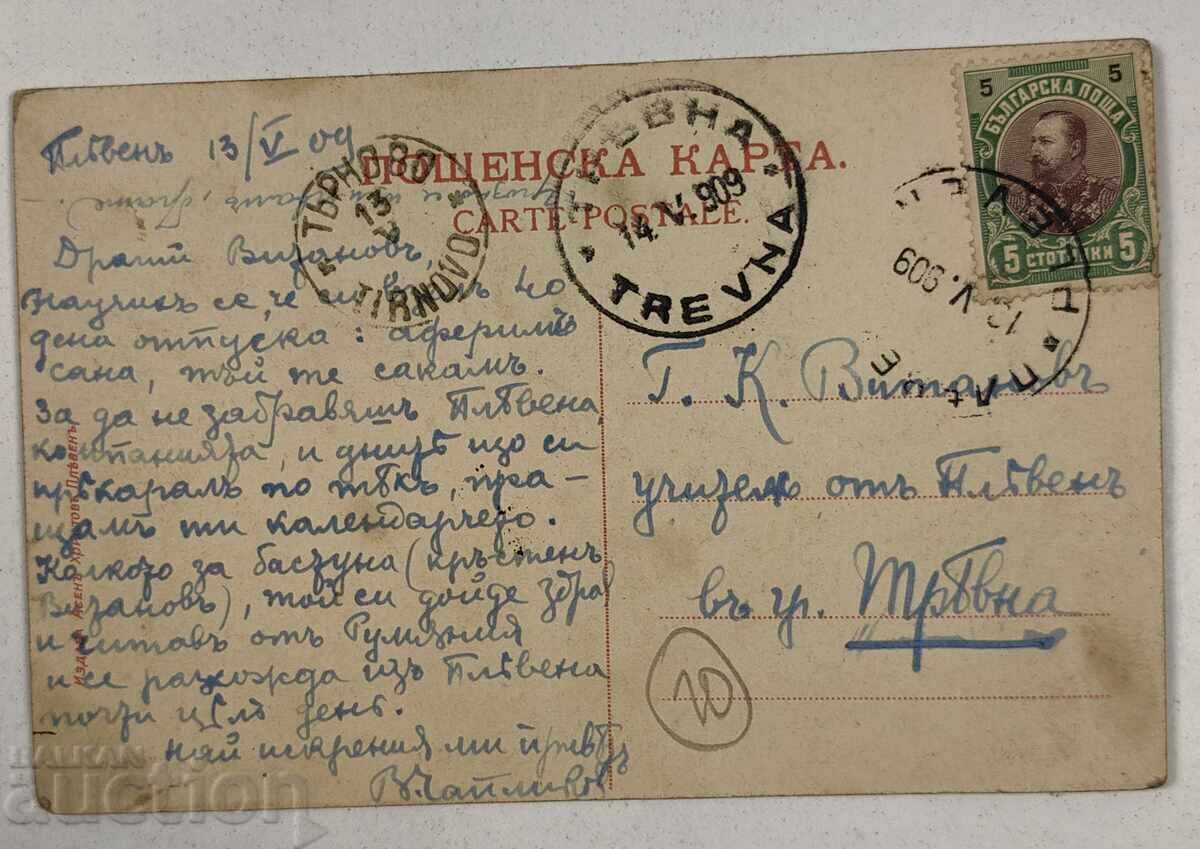 Плѣвенъ 13/V 09
ПОЩЕНСКА КАРТА.
CARTE-POSTALE.
ТЪРНОВО
13
TIRNOVO
ТРѢВНА
14.V.909
TREVNA
5 5
БЪЛГАРСКА ПОЩА
5 СТОТИНКИ 5
V.909
Драгий Витановъ,
научихъ се, че си 40
дена отпуска: аферимъ
сана, тъй те сакамъ.
За да не забравяшъ Плѣвена
компанията, и днитѣ що си
прѣкаралъ по тѣхъ, пра-
щамъ ти календарчето.
Колкото за бастуна (кръстенъ
Витановъ), той си дойде здравъ
и читавъ отъ Румѫния
и се разхожда изъ Плѣвена
почти цѣлъ день.
най искрения ми привѣтъ
В. Чапликовъ
Г. К. Витановъ
учител отъ Плѣвенъ
въ гр. Трѣвна
10
ИЗДАНИЕ АСЕНЪ ХРИСТОВЪ ПЛѢВЕНЪ
BALKAN
auction